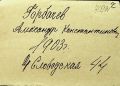 Горбачев
Александр Константинов.
1903г.
Слободская 44